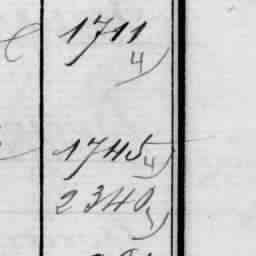 1711
4)
1745 4)
2340